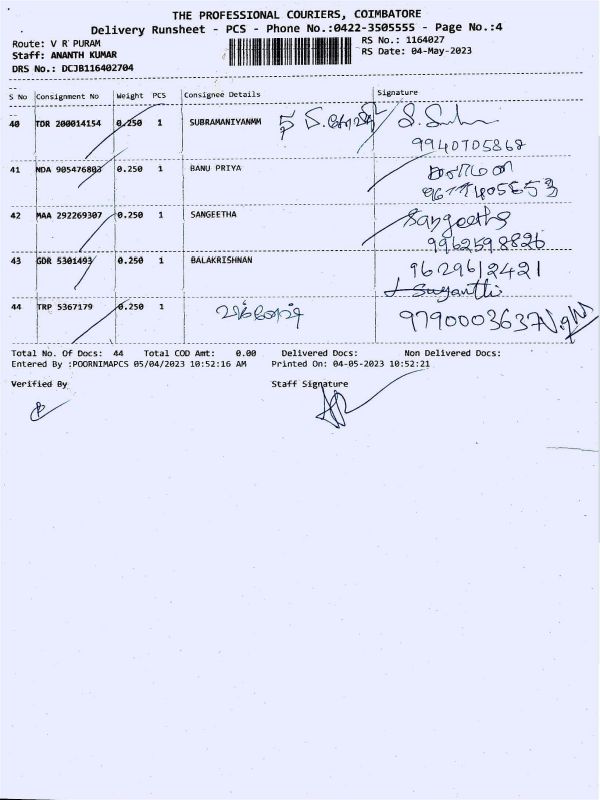 THE PROFESSIONAL COURIERS, COIMBATORE
Delivery Runsheet - PCS - Phone No.:0422-3505555 - Page No.:4
Route: V R PURAM
RS No.: 1164027
Staff: ANANTH KUMAR
RS Date: 04-May-2023
DRS No.: DCJB116402704
S No Consignment No Weight PCS Consignee Details Signature
40 TDR 200014154 0.250 1 SUBRAMANIYANMM
9940705868
41 NDA 905476803 0.250 1 BANU PRIYA
42 MAA 292269307 0.250 1 SANGEETHA Sangeetha
9962598826
43 GDR 5301493 0.250 1 BALAKRISHNAN 9629612421
Suganthi
44 TRP 5367179 0.250 1 9790003637
Total No. Of Docs: 44 Total COD Amt: 0.00 Delivered Docs: Non Delivered Docs:
Entered By :POORNIMAPCS 05/04/2023 10:52:16 AM Printed On: 04-05-2023 10:52:21
Verified By Staff Signature